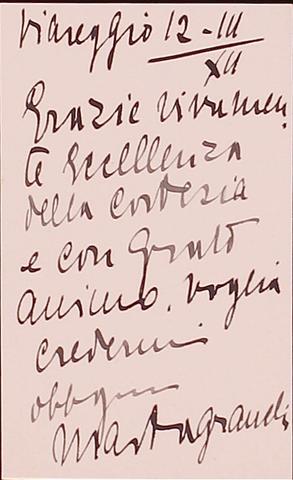 Viareggio 12-III
XII
Grazie vivamen
te Eccellenza
della cortesia
e con grato
animo. Voglia
credermi
obbgmo